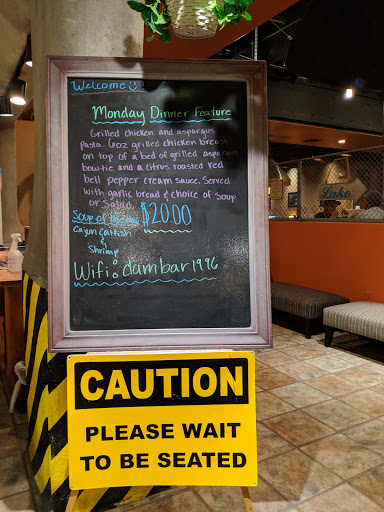 Welcome
Monday Dinner Feature
Grilled chicken and asparagus
Pasta. 6oz grilled chicken breast
on top of a bed of grilled asparagus
bow-tie and a citrus roasted red
bell pepper cream sauce. Served
with garlic bread & choice of soup
or Salad.
$20.00
Soup of the day
Cajun Catfish
&
Shrimp
Wifi: dambar1996
Lake
CAUTION
PLEASE WAIT
TO BE SEATED